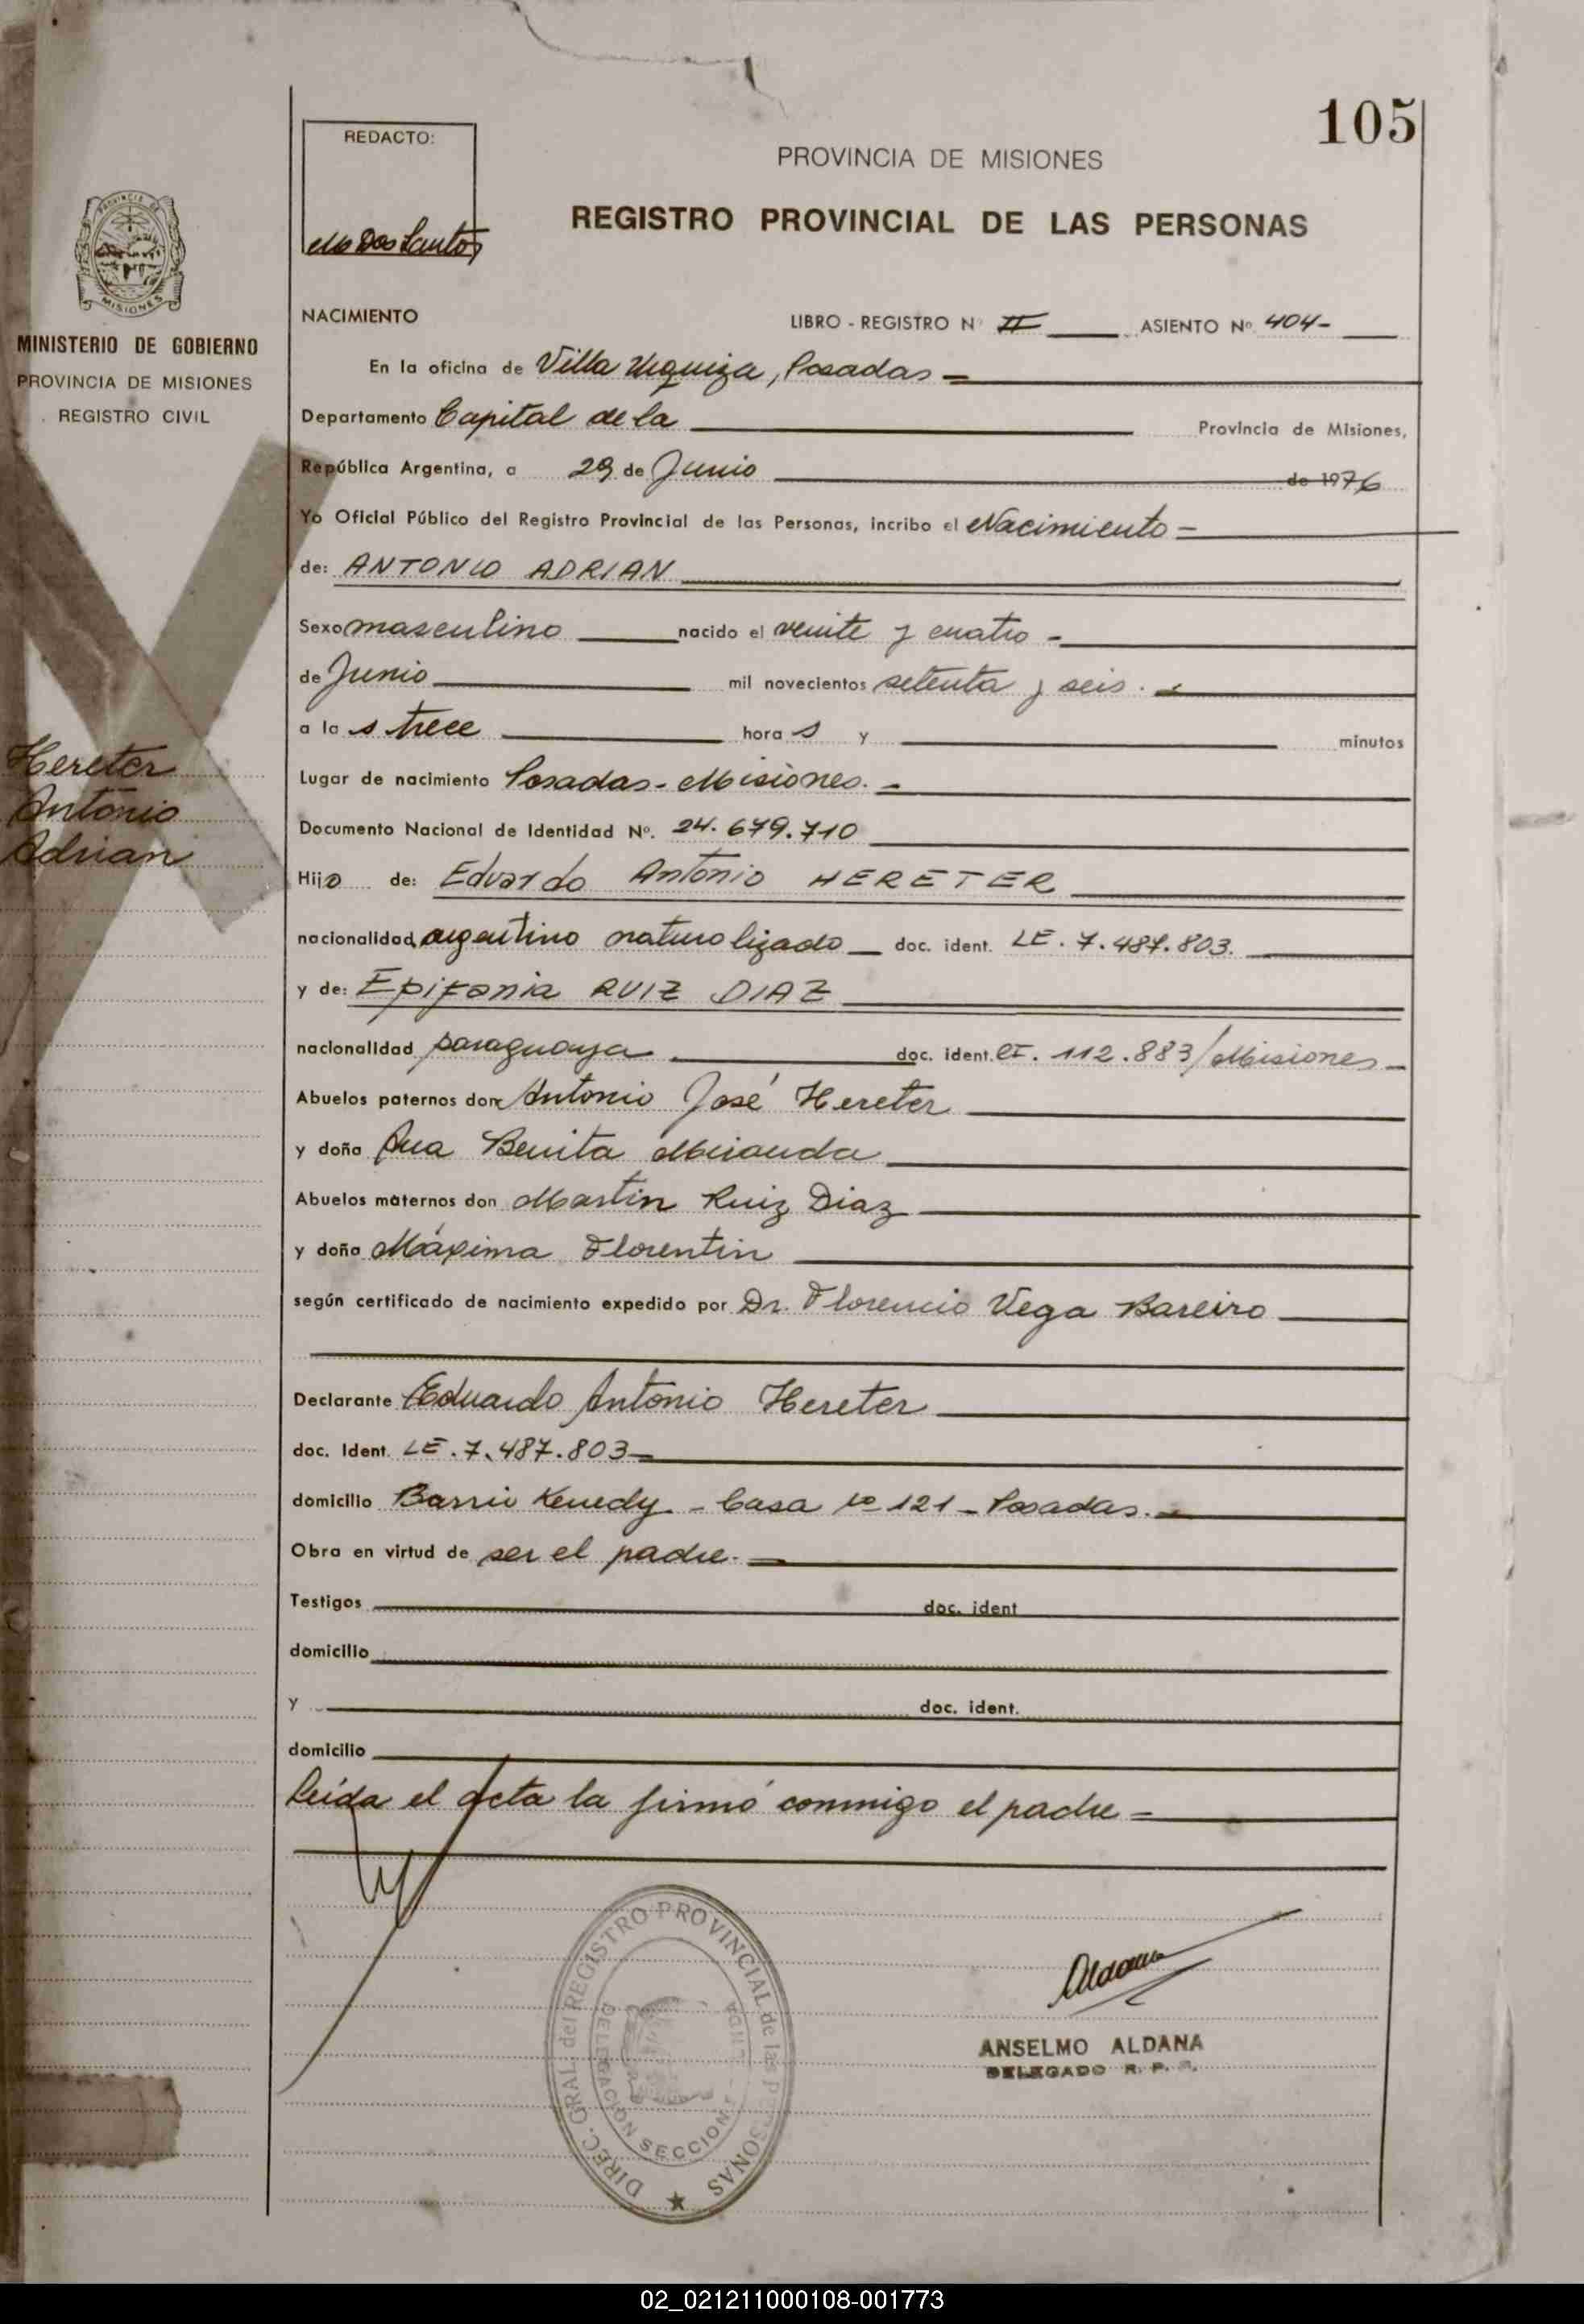 105
REDACTO:
PROVINCIA DE MISIONES
REGISTRO PROVINCIAL DE LAS PERSONAS
Dos Santos
PROVINCIA DE
MISIONES
MINISTERIO DE GOBIERNO
PROVINCIA DE MISIONES
REGISTRO CIVIL
NACIMIENTO LIBRO - REGISTRO Nº II ASIENTO Nº 404-
En la oficina de Villa Urquiza, Posadas =
Departamento Capital de la Provincia de Misiones,
República Argentina, a 29 de Junio de 1976
Yo Oficial Público del Registro Provincial de las Personas, incribo el Nacimiento =
de: ANTONIO ADRIAN
Sexo masculino nacido el veinte y cuatro -
de Junio mil novecientos setenta y seis. -
a la s trece hora s y minutos
Hereter
Antonio
Adrian
Lugar de nacimiento Posadas - Misiones. -
Documento Nacional de Identidad Nº. 24.679.710
Hijo de: Eduardo Antonio HERETER
nacionalidad argentino naturalizado doc. ident. LE. 7.487.803.
y de: Epifania RUIZ DIAZ
nacionalidad paraguaya doc. ident. CI. 112.883/Misiones -
Abuelos paternos don Antonio José Hereter
y doña Ana Benita Miranda
Abuelos maternos don Martin Ruiz Diaz
y doña Máxima Florentin
según certificado de nacimiento expedido por Dr. Florencio Vega Bareiro
Declarante Eduardo Antonio Hereter
doc. Ident. LE. 7.487.803
domicilio Barrio Kenedy - Casa Nº 121 - Posadas. -
Obra en virtud de ser el padre. -
Testigos doc. ident
domicilio
y doc. ident.
domicilio
Leída el acta la firmó conmigo el padre =
DIREC. GRAL. del REGISTRO PROVINCIAL de las PERSONAS
DELEGACION SECCION
Aldana
ANSELMO ALDANA
DELEGADO R. P.
02_021211000108-001773